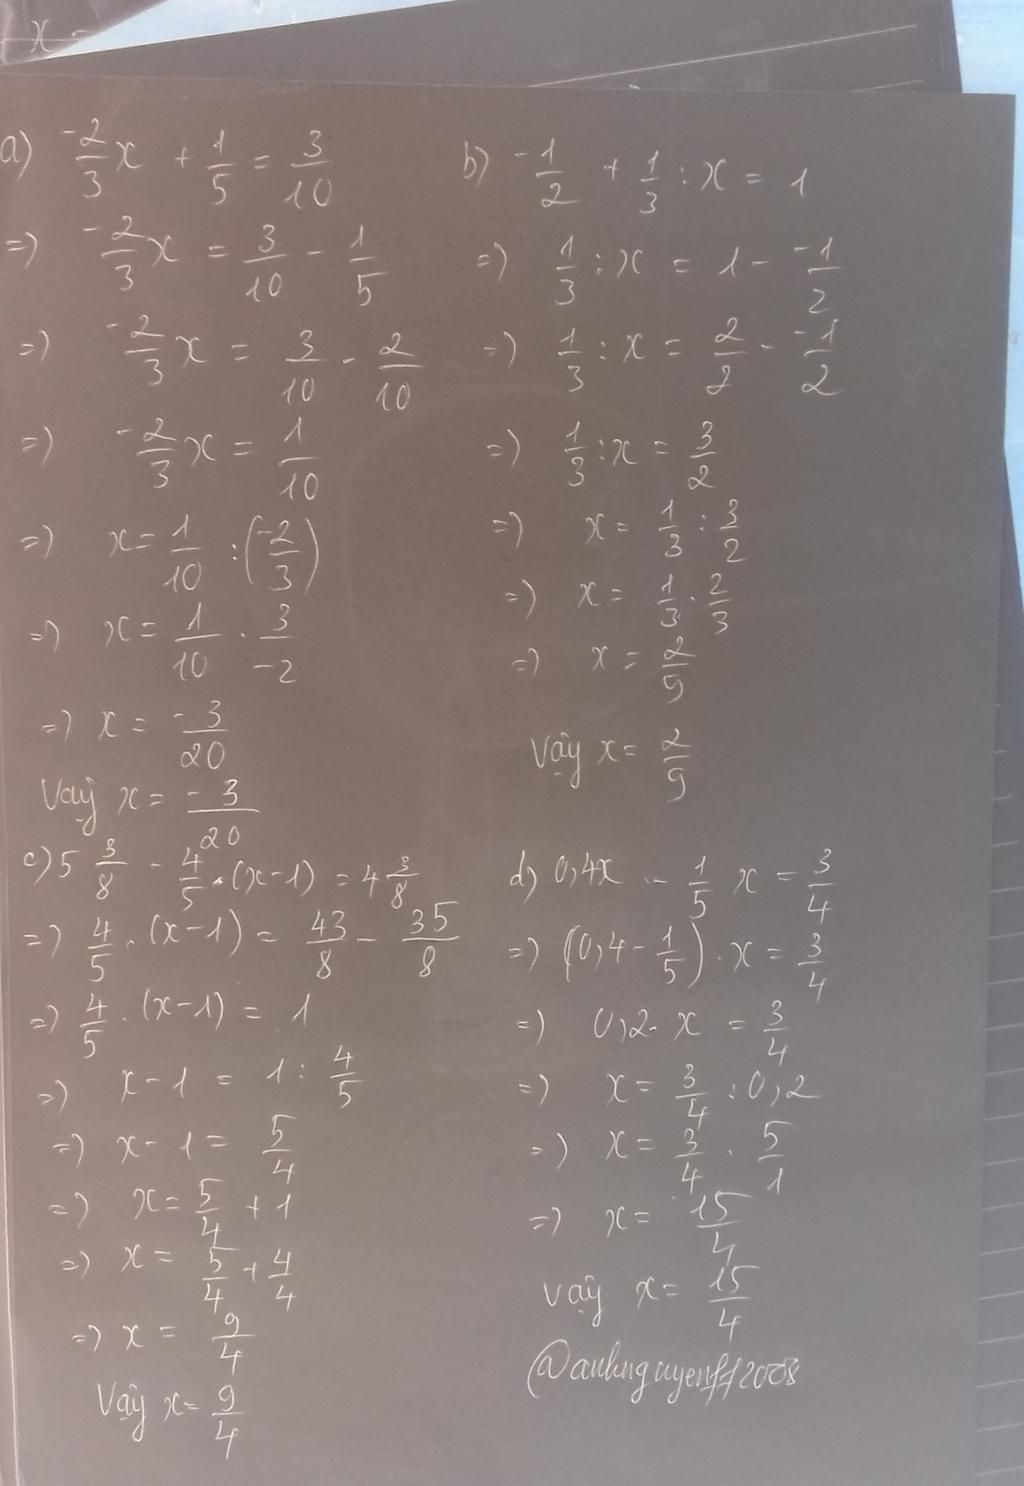 x -
a) -2/3 x + 1/5 = 3/10
=) -2/3 x = 3/10 - 1/5
=) -2/3 x = 3/10 - 2/10
=) -2/3 x = 1/10
=) x = 1/10 : (-2/3)
=) x = 1/10 . 3/-2
=) x = -3/20
Vậy x = -3/20
b) -1/2 + 1/3 : x = 1
=) 1/3 : x = 1 - -1/2
=) 1/3 : x = 2/2 - -1/2
=) 1/3 : x = 3/2
=) x = 1/3 : 3/2
=) x = 1/3 . 2/3
=) x = 2/9
Vậy x = 2/9
c) 5 3/8 - 4/5 . (x-1) = 4 3/8
=) 4/5 . (x-1) = 43/8 - 35/8
=) 4/5 . (x-1) = 1
=) x-1 = 1 : 4/5
=) x-1 = 5/4
=) x = 5/4 + 1
=) x = 5/4 + 4/4
=) x = 9/4
Vậy x = 9/4
d) 0,4x - 1/5 x = 3/4
=) (0,4 - 1/5) . x = 3/4
=) 0,2 . x = 3/4
=) x = 3/4 : 0,2
=) x = 3/4 . 5/1
=) x = 15/4
Vậy x = 15/4